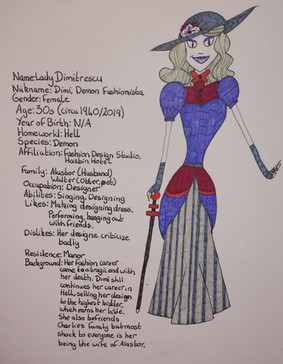 Name: Lady Dimitrescu
Nickname: Dimi, Demon Fashionista
Gender: Female
Age: 30s (circa 1940/2019)
Year of Birth: N/A
Homeworld: Hell
Species: Demon
Affiliation: Fashion Design Studio,
Hazbin Hotel
Family: Alastor (Husband)
Walter (Otter, pet)
Occupation: Designer
Abilities: Singing, Designing
Likes: Making designing dress,
Performing, hanging out
with friends.
Dislikes: Her designs criticize
badly
Residence: Manor
Background: Her fashion career
came to a tragic end with
her death. Dimi still
continues her career in
Hell, selling her design
to the highest bidder,
which earns her title.
She also befriends
Charlie's family but most
shock to everyone is her
being the wife of Alastor.